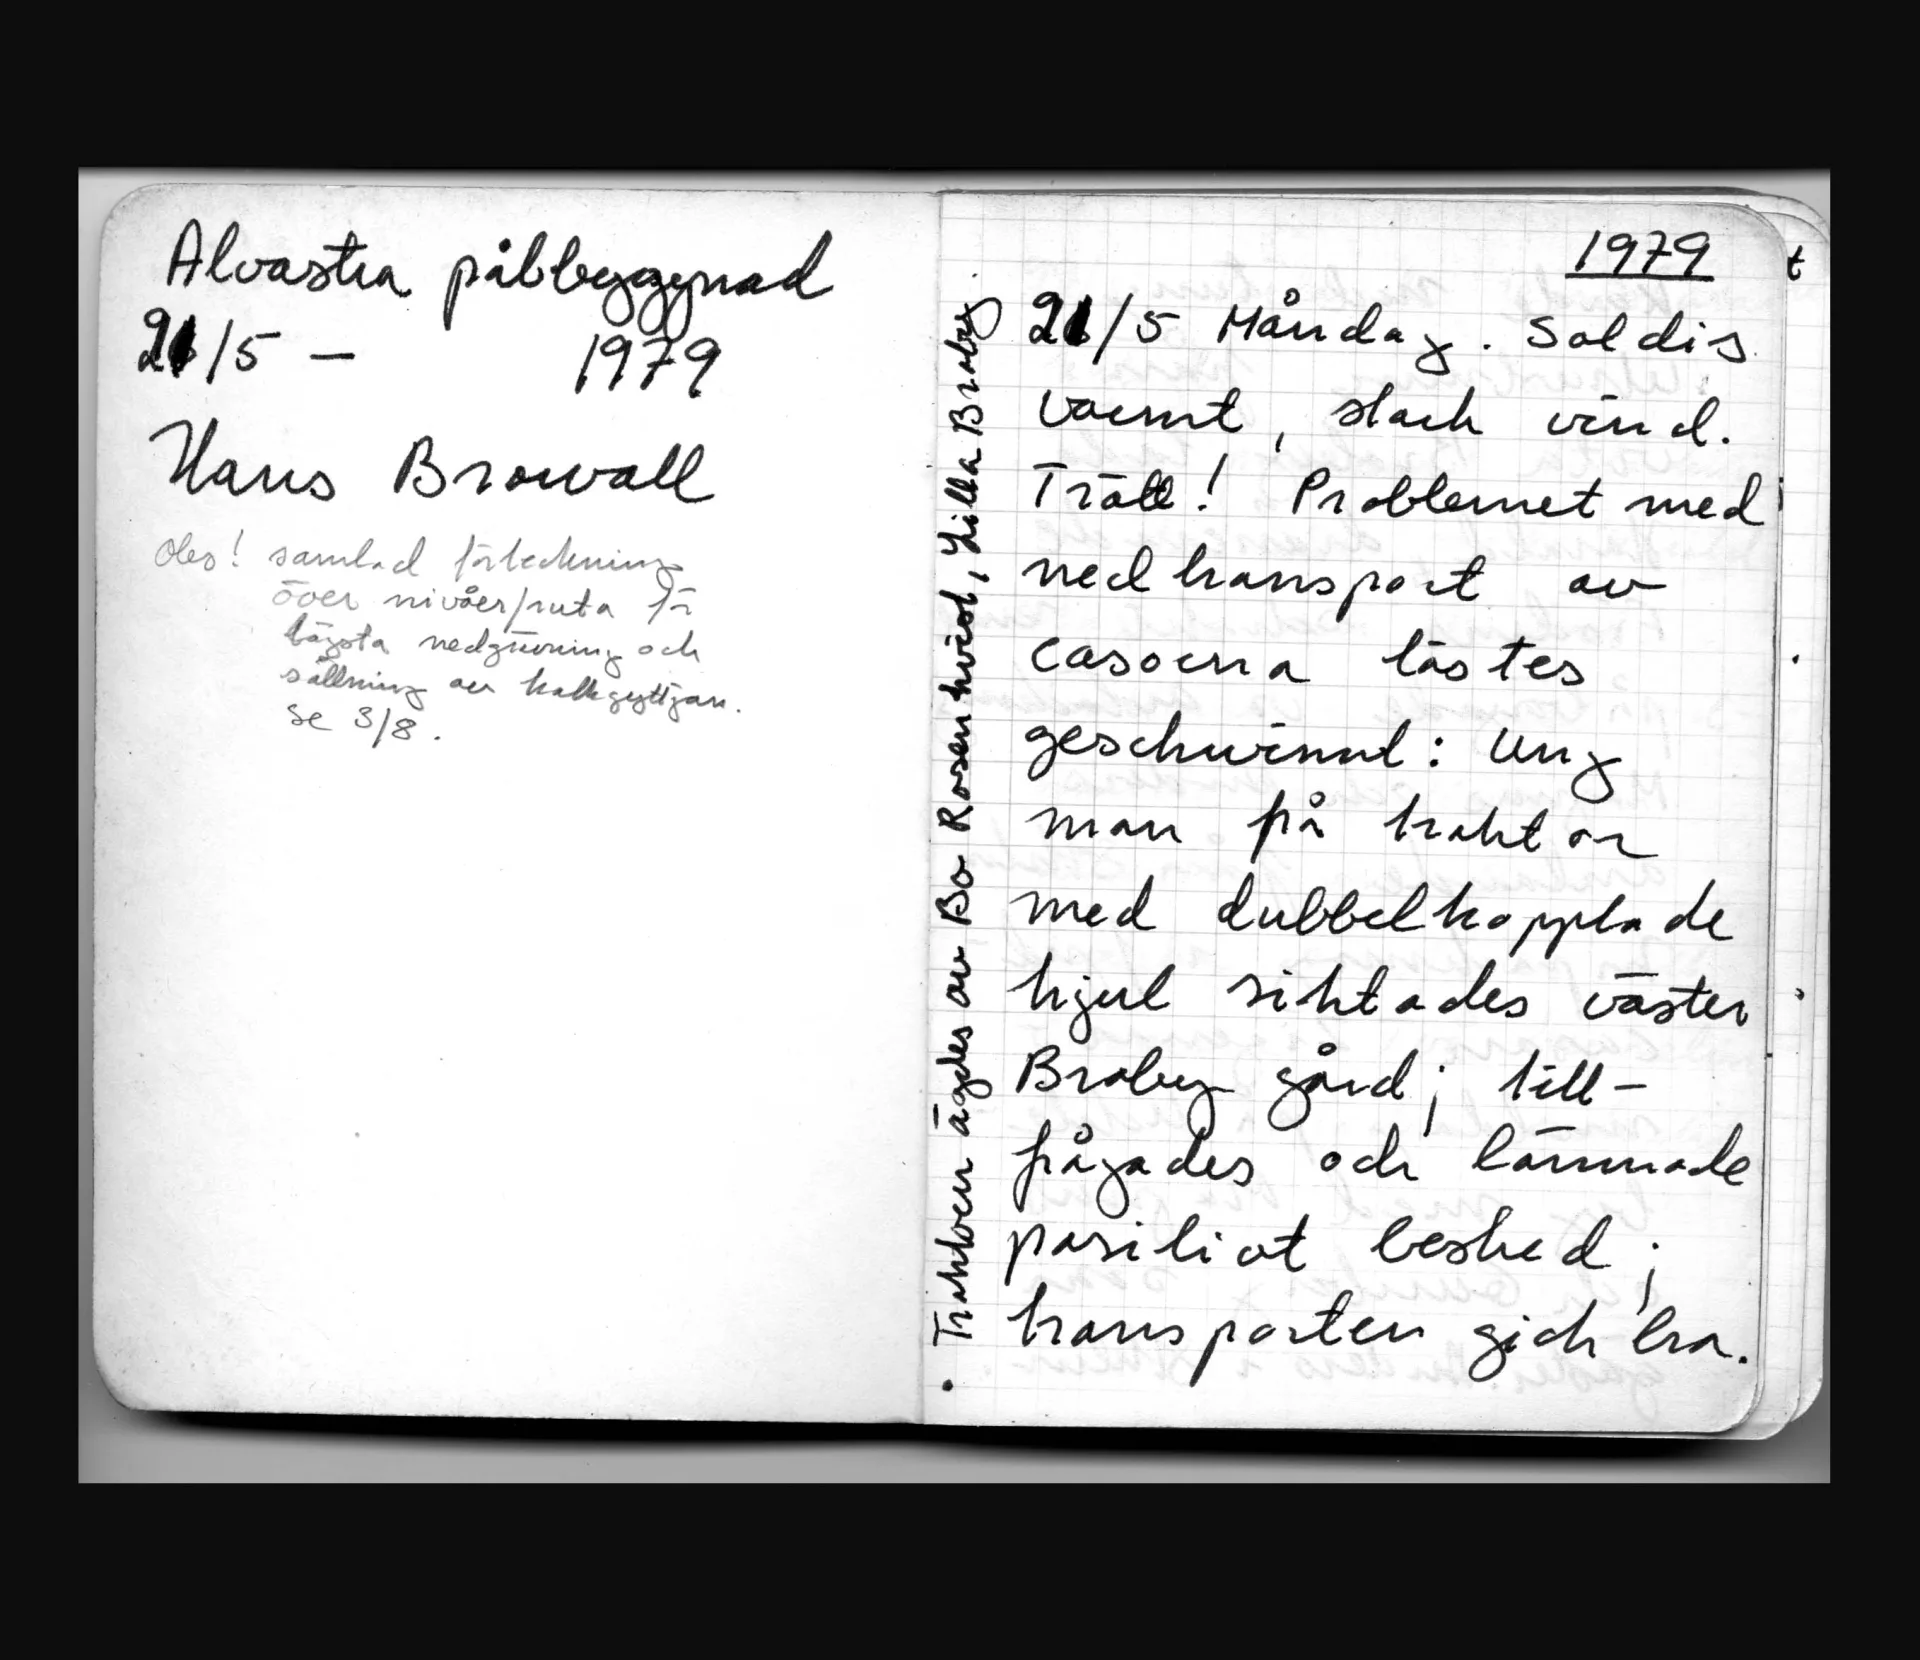 Alvastra pålbyggnad
21/5 — 1979
Hans Browall
Obs! samlad förteckning
över nivåer/ruta för
lägsta nedgrävning och
sållning av kalkgyttjan.
se 3/8.
1979
21/5 Måndag. Soldis
varmt, slack vind.
Trött! Problemet med
nedtransport av
casoerna löstes
geschwinnt: Ung
man på traktor
med dubbelkopplade
hjul siktades väster
Broby gård; till-
frågades och lämnade
positivt besked;
transporten gick bra.
• Traktorn ägdes av Bo Rosenkvist, Lilla Broby.